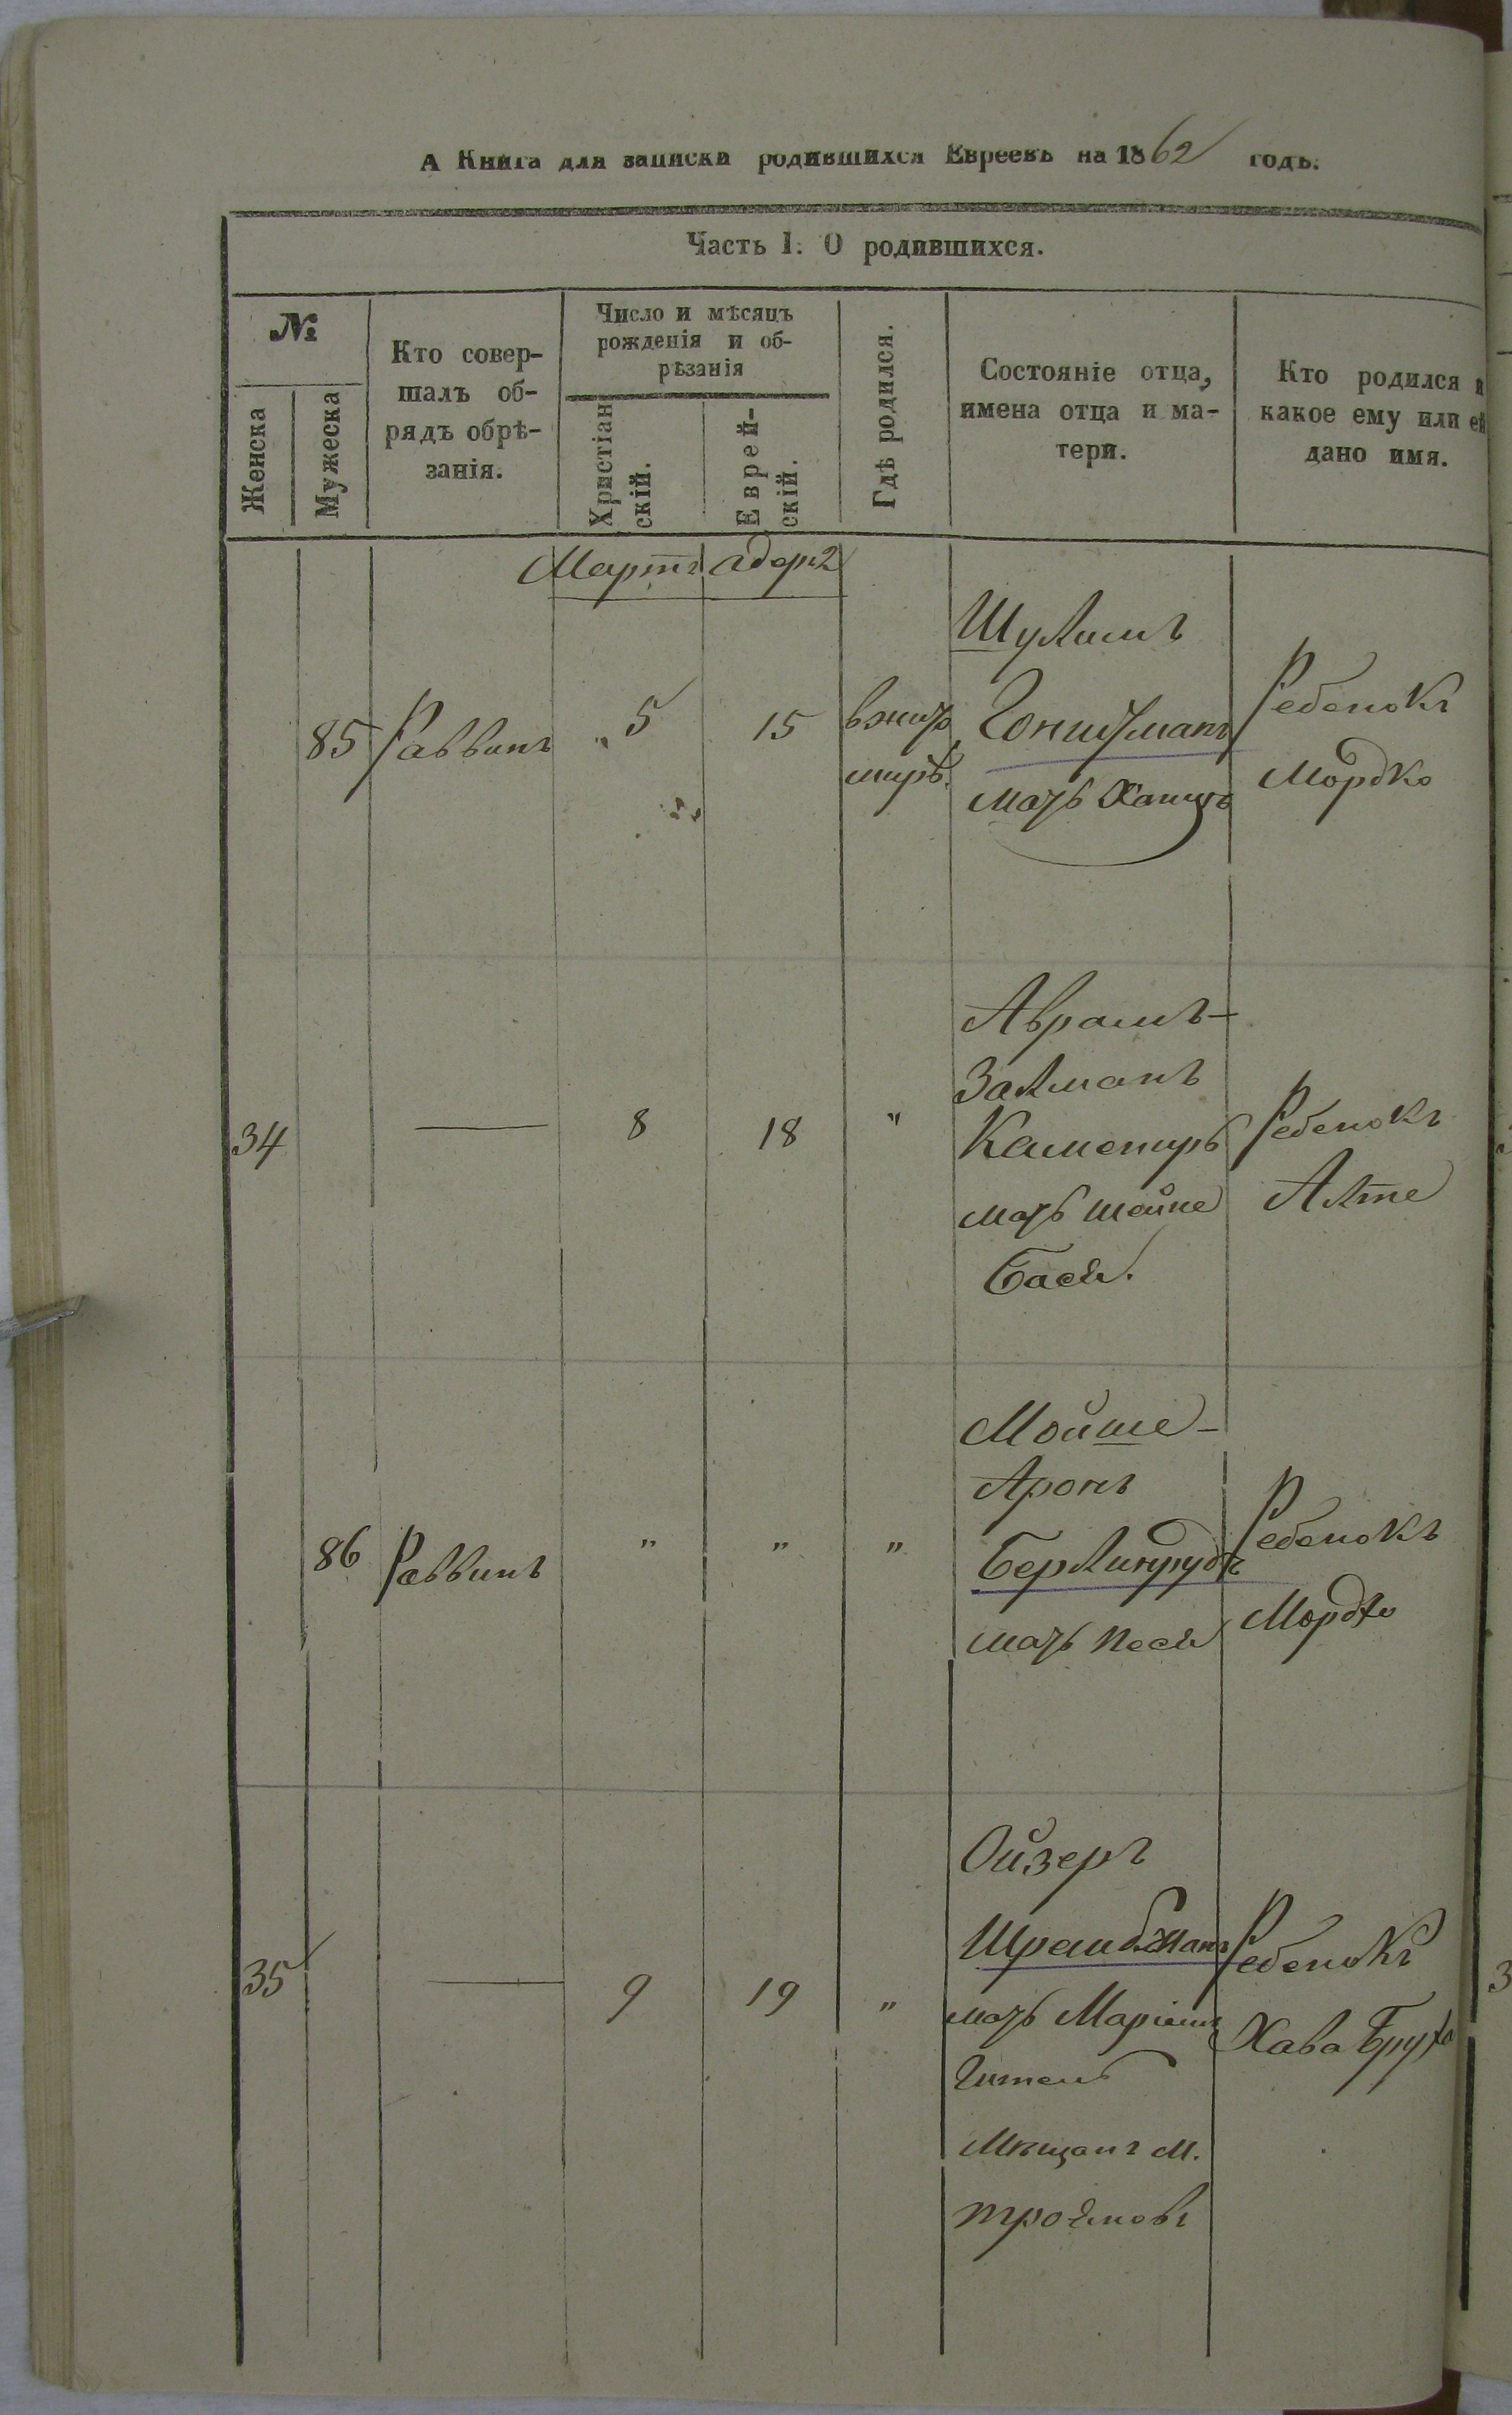 А Книга для записки родившихся Евреевъ на 1862 годъ.
Часть I. О родившихся.
№
Женска
Мужеска
Кто совер-
шалъ об-
рядъ обрѣ-
занія.
Число и мѣсяцъ
рожденія и об-
рѣзанія
Христіан
скій.
Еврей-
скій.
Гдѣ родился.
Состояніе отца,
имена отца и ма-
тери.
Кто родился и
какое ему или ей
дано имя.
Мартъ Адеръ 2
85
Раввинъ
5
15
в жито
миръ.
Шулимъ
мать
Ребенокъ
Мордко
34
—
8
18
"
Аврамъ-
Залманъ
мать Шейне
Бася.
Ребенокъ
Алте
86
Раввинъ
"
"
"
Мойше-
Аронъ
мать Песя
Ребенокъ
Мордко
35
—
9
19
"
Ойзеръ
мать
Гитель
Мѣщанъ м.
трояновъ
Ребенокъ
Хава Бруха